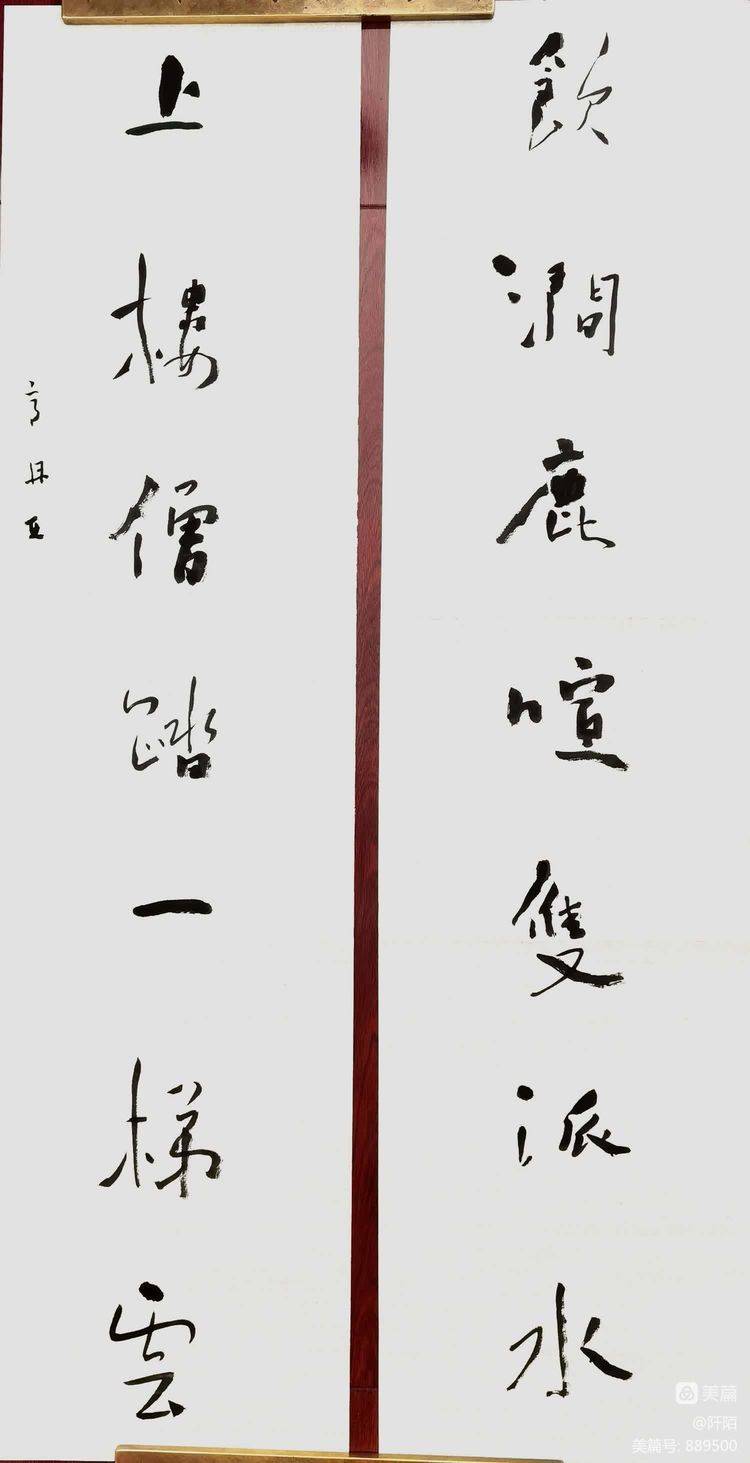 飲澗鹿喧雙派水
上樓僧踏一梯雲
美篇
@阡陌
美篇号: 889500